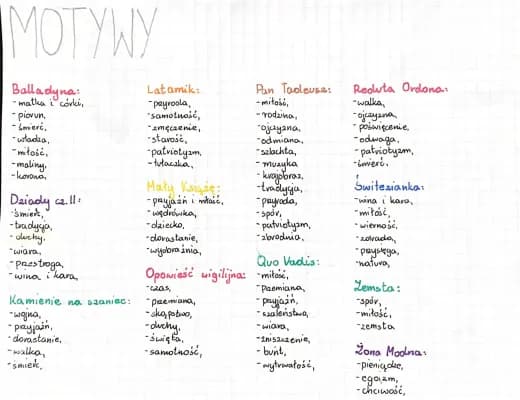 MOTYWY
Balladyna:
- matka i córki,
- piorun,
- śmierć,
- władza,
- miłość,
- maliny,
- korona,
Dziady cz.II:
- śmierć,
- tradycja,
- duchy,
- wiara,
- przestroga,
- wina i kara,
Kamienie na szaniec:
- wojna,
- przyjaźń,
- dorastanie,
- walka,
- śmierć,
Latarnik:
- przyroda,
- samotność,
- zmęczenie,
- starość,
- patriotyzm,
- tułaczka,
Mały Książę:
- przyjaźń i miłość,
- wędrówka,
- dziecko,
- dorastanie,
- wyobraźnia,
Opowieść wigilijna:
- czas,
- przemiana,
- skąpstwo,
- duchy,
- święta,
- samotność,
Pan Tadeusz:
- miłość,
- rodzina,
- ojczyzna,
- odmiana,
- szlachta,
- muzyka
- krajobraz,
- tradycja,
- przyroda,
- spór,
- patriotyzm,
- zbrodnia,
Quo Vadis:
- miłość,
- przemiana,
- przyjaźń,
- szaleństwo,
- wiara,
- zniszczenie,
- bunt,
- wytrwałość,
Reduta Ordona:
- walka,
- ojczyzna,
- poświęcenie,
- odwaga,
- patriotyzm,
- śmierć,
Świtezianka:
- wina i kara,
- miłość,
- wierność,
- zdrada,
- przysięga,
- natura,
Zemsta:
- spór,
- miłość,
- zemsta
Żona Modna:
- pieniądze,
- egoizm,
- chciwość,